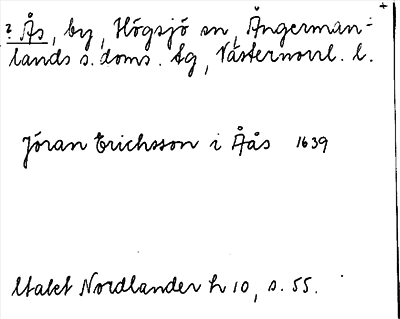 ? Ås, by, Högsjö sn, Ångerman-
lands s. doms. tg, Västernorrl. l.
Jöran Erichsson i Åås 1639
Utakt Nordlander h 10, s. 55.